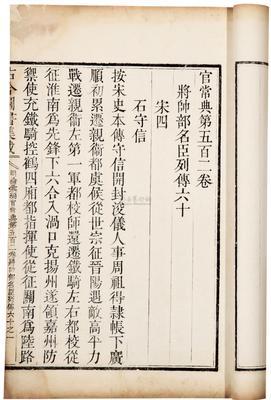 官常典第五百二卷
將帥部名臣列傳六十
宋四
石守信
按宋史本傳守信開封浚儀人事周祖得隸帳下廣
順初累遷親衛都虞候從世宗征晉陽遇敵高平力
戰遷親衛左第一軍都校師還遷鐵騎左右都校從
征淮南為先鋒下六合入渦口克揚州遂領嘉州防
禦使充鐵騎控鶴四廂都指揮使從征關南為陸路
古今圖書集成